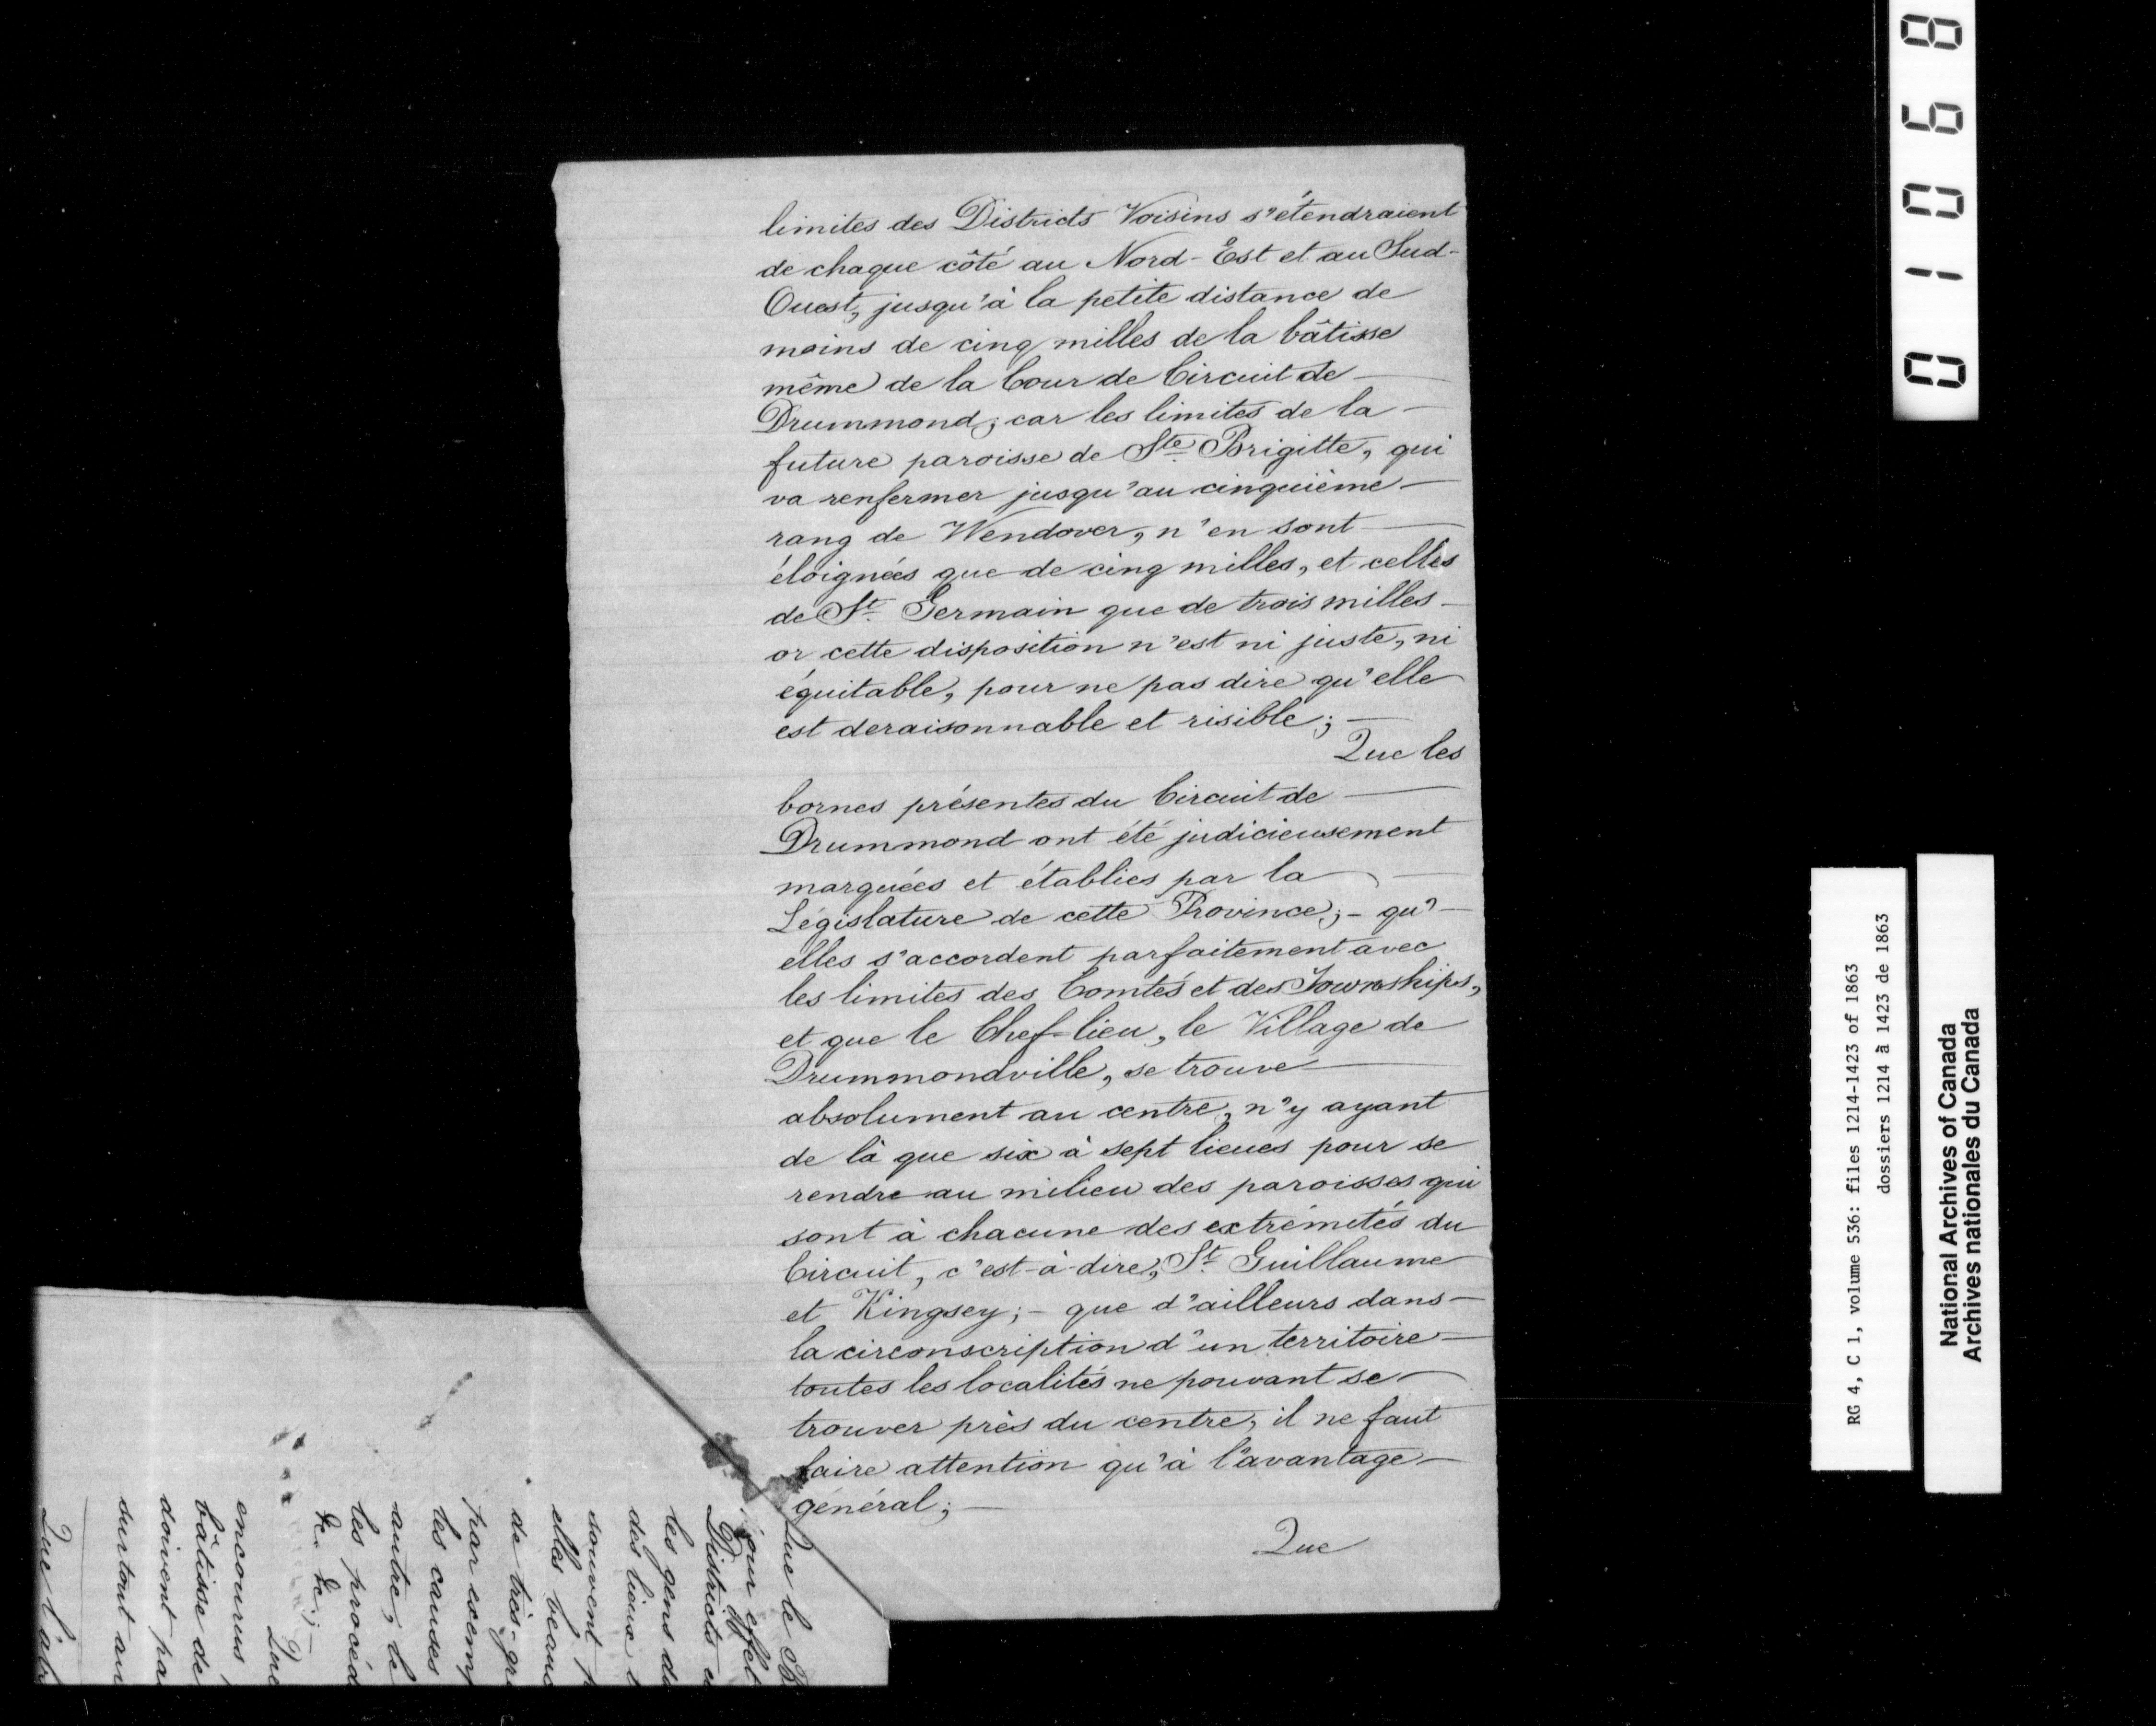 limites des Districts Voisins s'étendraient
de chaque côté au Nord-Est et au Sud-
Ouest, jusqu'à la petite distance de
moins de cinq milles de la bâtisse
même de la Cour de Circuit de —
Drummond; car les limites de la —
future paroisse de Ste. Brigitte, qui
va renfermer jusqu'au cinquième —
rang de Wendover, n'en sont —
éloignées que de cinq milles, et celles
de St. Germain que de trois milles —
or cette disposition n'est ni juste, ni
équitable, pour ne pas dire qu'elle
est deraisonnable et risible; —
Que les
bornes présentes du Circuit de —
Drummond ont été judicieusement
marquées et établies par la —
Législature de cette Province; - qu'-
elles s'accordent parfaitement avec
les limites des Comtés et des Townships,
et que le Chef-lieu, le Village de
Drummondville, se trouve —
absolument au centre, n'y ayant
de là que six à sept lieues pour se
rendre au milieu des paroisses qui
sont à chacune des extrémités du
Circuit, c'est-à-dire, St. Guillaume
et Kingsey; - que d'ailleurs dans —
la circonscription d'un territoire —
toutes les localités ne pouvant se —
trouver près du centre, il ne faut
faire attention qu'à l'avantage —
général; —
Que
Que le B
pour effet
Districts e
les gens de
des lieux
souvent p
elles beauc
de très-gr
par exemp
les causes
autre, le
les procéd
&c. &c; -
Que
encourus
bâtisse de
doivent pa
surtout au
Que l'abo
01068
RG 4, C 1, volume 536: files 1214-1423 of 1863
dossiers 1214 à 1423 de 1863
National Archives of Canada
Archives nationales du Canada